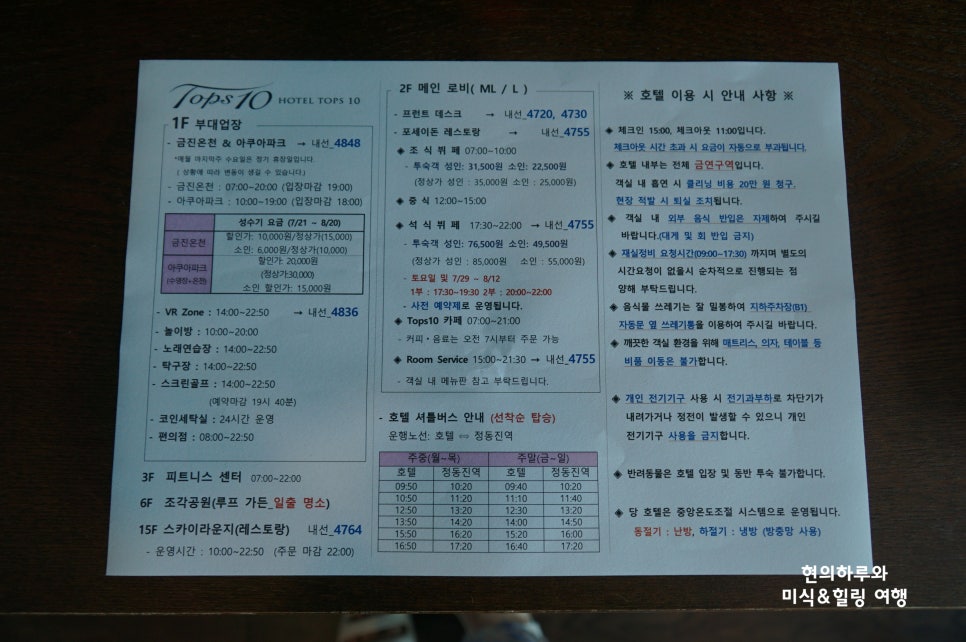 Tops10 HOTEL TOPS 10
1F 부대업장
- 금진온천 & 아쿠아파크 → 내선_4848
*매월 마지막주 수요일은 정기 휴장일입니다.
( 상황에 따라 변동이 생길 수 있습니다.)
- 금진온천 : 07:00~20:00 (입장마감 19:00)
- 아쿠아파크 : 10:00~19:00 (입장마감 18:00)
성수기 요금 (7/21 ~ 8/20)
금진온천
할인가: 10,000원/정상가(15,000)
소인: 6,000원/정상가(10,000)
아쿠아파크
(수영장+온천)
할인가: 20,000원
(정상가30,000)
소인 할인가: 15,000원
- VR Zone : 14:00~22:50 → 내선_4836
- 놀이방 : 10:00~20:00
- 노래연습장 : 14:00~22:50
- 탁구장 : 14:00~22:50
- 스크린골프 : 14:00~22:50
(예약마감 19시 40분)
- 코인세탁실 : 24시간 운영
- 편의점 : 08:00~22:50
3F 피트니스 센터 07:00~22:00
6F 조각공원(루프 가든_일출 명소)
15F 스카이라운지(레스토랑) 내선_4764
- 운영시간 : 10:00~22:50 (주문 마감 22:00)
2F 메인 로비( ML / L )
- 프런트 데스크 → 내선_4720, 4730
- 포세이돈 레스토랑 → 내선_4755
◈ 조 식 뷔 페 07:00~10:00
- 투숙객 성인: 31,500원 소인: 22,500원
(정상가 성인 : 35,000원 소인 : 25,000원)
◈ 중 식 12:00~15:00
◈ 석 식 뷔 페 17:30~22:00 → 내선_4755
- 투숙객 성인: 76,500원 소인: 49,500원
(정상가 성인 : 85,000원 소인 : 55,000원)
- 토요일 및 7/29 ~ 8/12
1부 : 17:30~19:30 2부 : 20:00~22:00
- 사전 예약제로 운영됩니다.
◈ Tops10 카페 07:00~21:00
- 커피·음료는 오전 7시부터 주문 가능
◈ Room Service 15:00~21:30 → 내선_4755
- 객실 내 메뉴판 참고 부탁드립니다.
- 호텔 셔틀버스 안내 (선착순 탑승)
운행노선: 호텔 ⇔ 정동진역
주중(월~목) 주말(금~일)
호텔 정동진역 호텔 정동진역
09:50 10:20 09:40 10:20
10:50 11:20 11:10 11:40
12:50 13:20 12:30 13:20
13:50 14:20 14:00 14:50
15:50 16:20 15:20 16:00
16:50 17:20 16:40 17:20
※ 호텔 이용 시 안내 사항 ※
◈ 체크인 15:00, 체크아웃 11:00입니다.
체크아웃 시간 초과 시 요금이 자동으로 부과됩니다.
◈ 호텔 내부는 전체 금연구역입니다.
객실 내 흡연 시 클리닝 비용 20만 원 청구.
현장 적발 시 퇴실 조치됩니다.
◈ 객실 내 외부 음식 반입은 자제하여 주시길
바랍니다.(대게 및 회 반입 금지)
◈ 재실정비 요청시간(09:00~17:30) 까지며 별도의
시간요청이 없을시 순차적으로 진행되는 점
양해 부탁드립니다.
◈ 음식물 쓰레기는 잘 밀봉하여 지하주차장(B1)
자동문 옆 쓰레기통을 이용하여 주시길 바랍니다.
◈ 깨끗한 객실 환경을 위해 매트리스, 의자, 테이블 등
비품 이동은 불가합니다.
◈ 개인 전기기구 사용 시 전기과부하로 차단기가
내려가거나 정전이 발생할 수 있으니 개인
전기기구 사용을 금지합니다.
◈ 반려동물은 호텔 입장 및 동반 투숙 불가합니다.
◈ 당 호텔은 중앙온도조절 시스템으로 운영됩니다.
동절기 : 난방, 하절기 : 냉방 (방충망 사용)
현의하루와
미식&힐링 여행